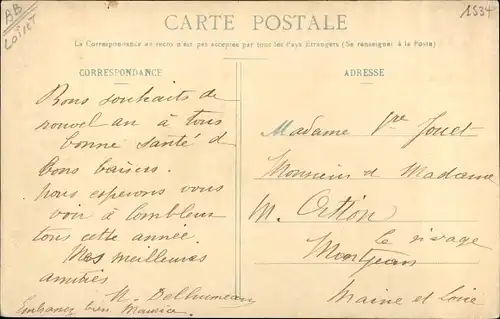 AB
LOIRET
1534
CARTE POSTALE
La Correspondance au recto n'est pas acceptée par tous les Pays Etrangers (Se renseigner à la Poste)
CORRESPONDANCE
Bons souhaits de
nouvel an à tous
bonne santé &
bons baisers.
Nous esperons vous
voir à Combleux
tous cette année.
Mes meilleures
amitiés
M. Delhumeau
Embrassez bien Maurice.
ADRESSE
Madame Vve Jouet
Monsieur & Madame
M.
le rivage
Montjean
Maine et Loire